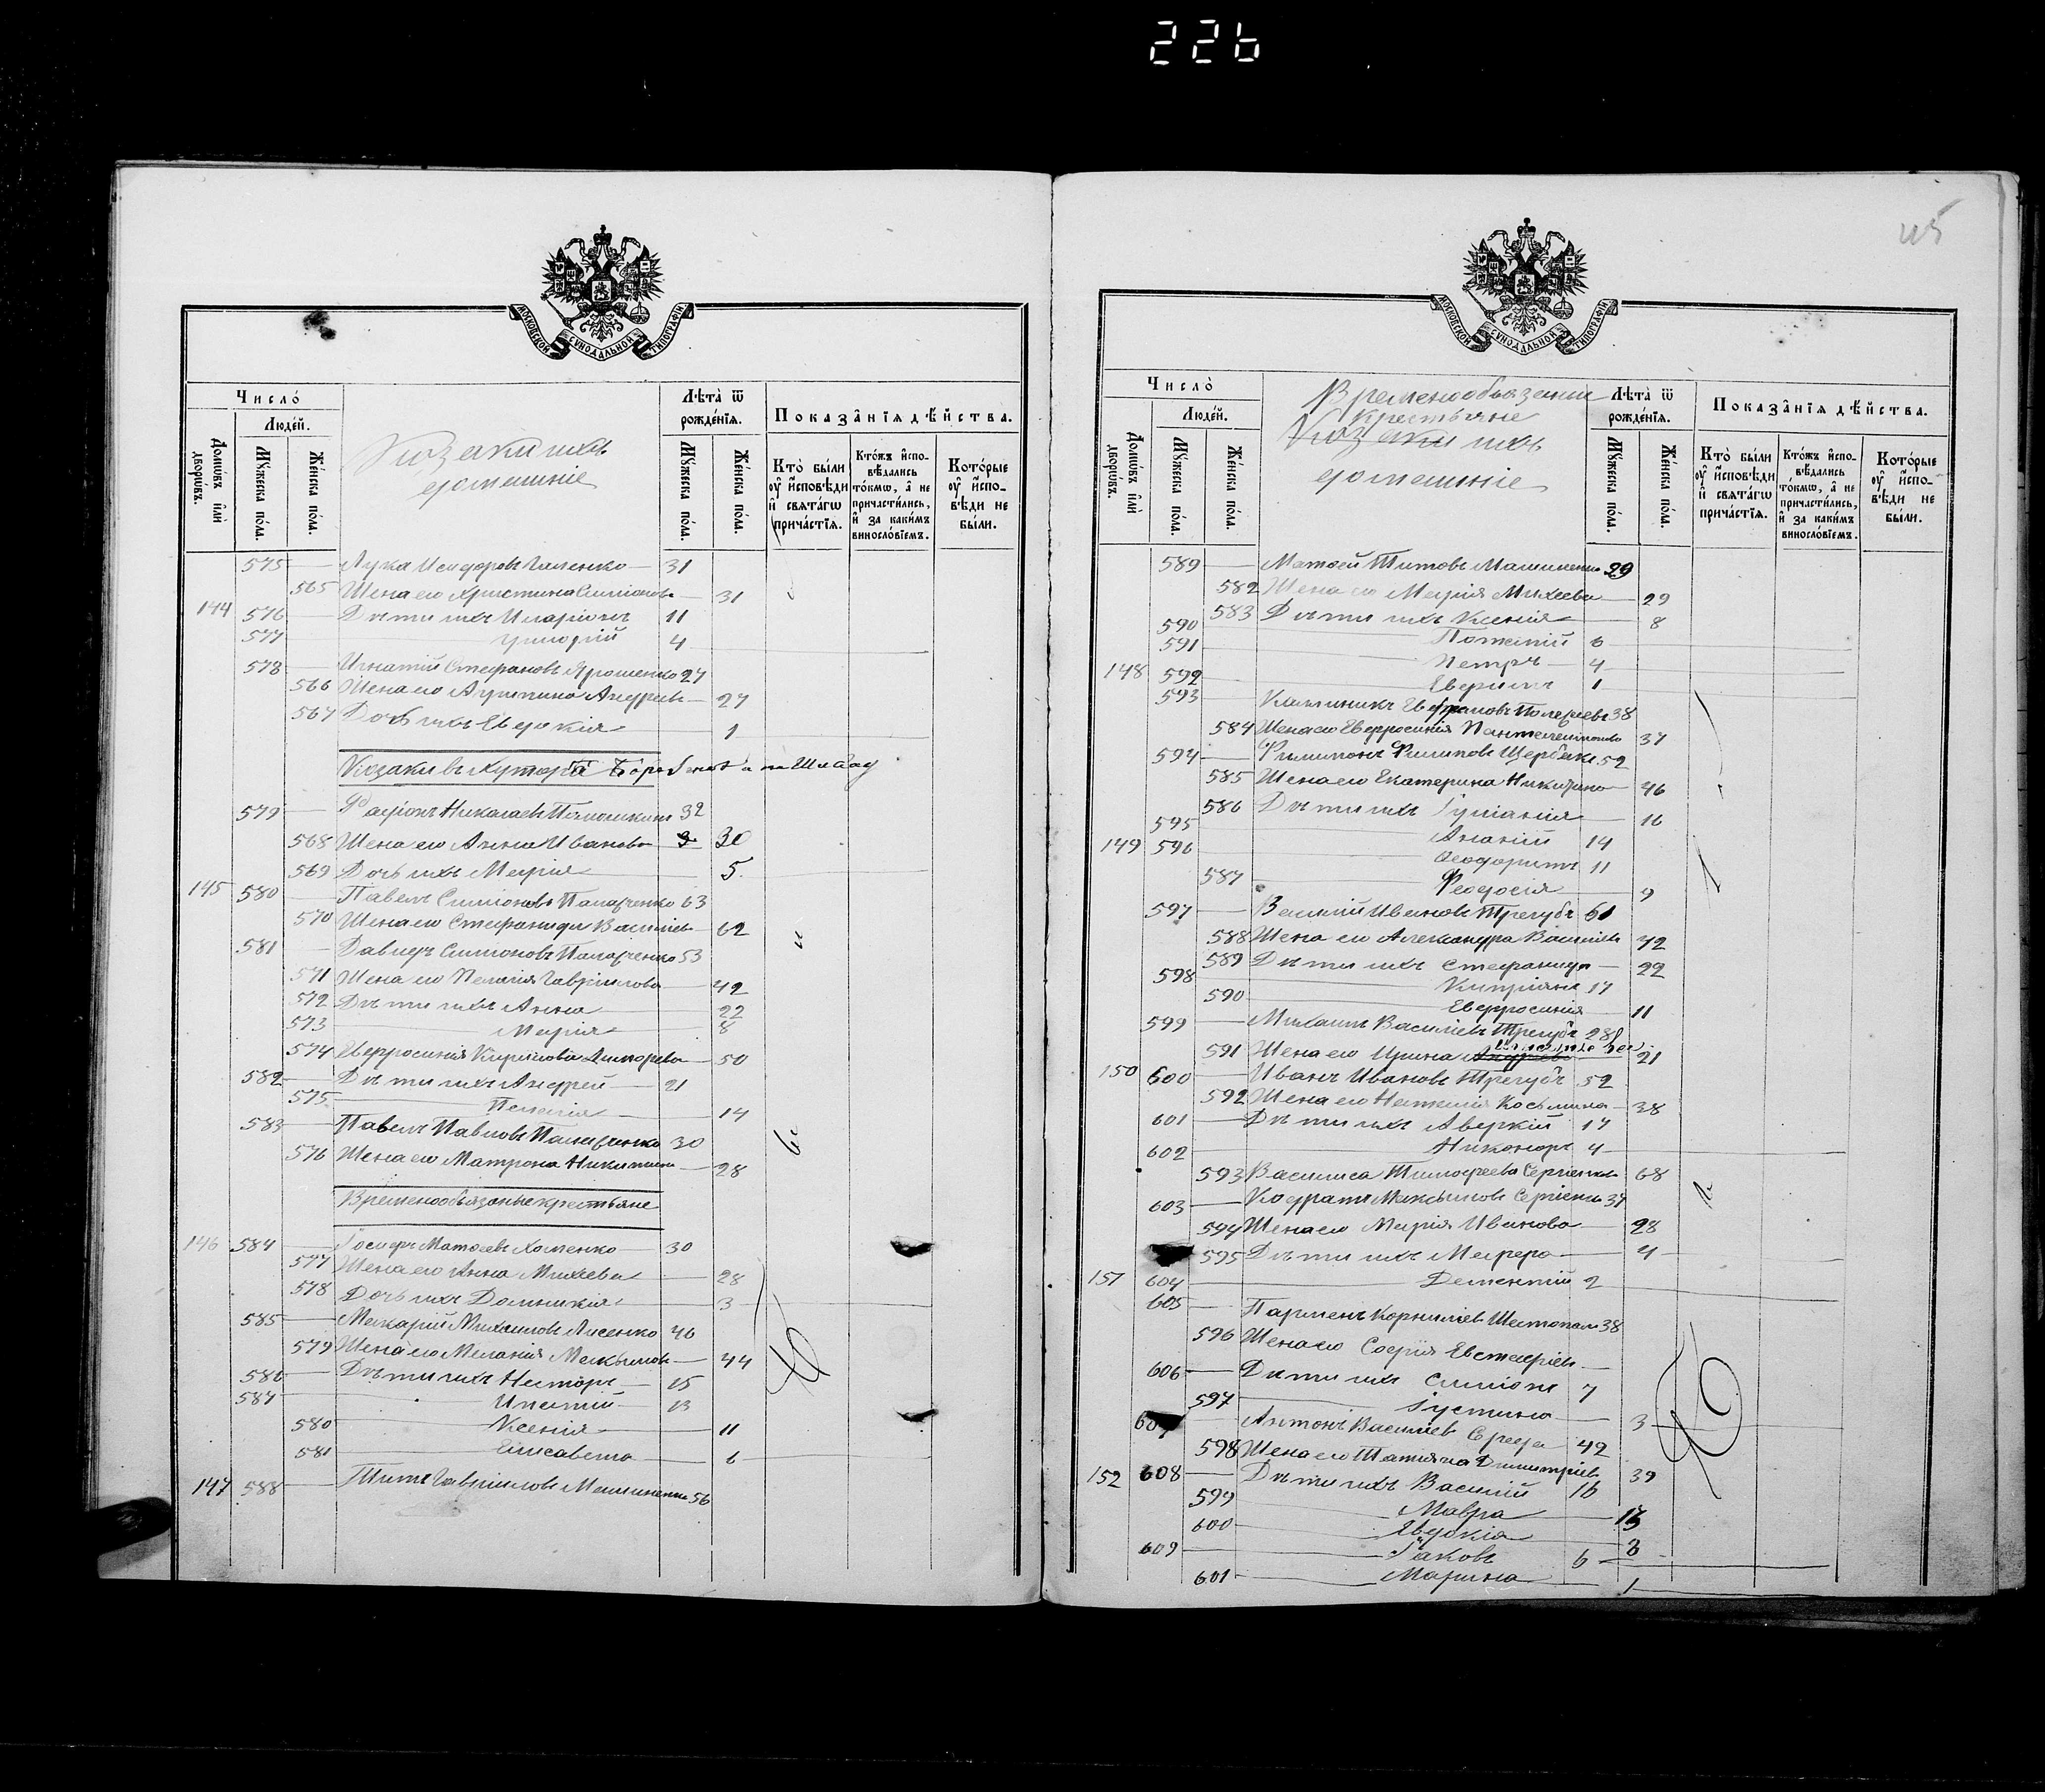 226
МОСКОВСКОЙ СѴНОДАЛЬНОЙ ТИПОГРАФІИ
Число́
Людей.
Домѡвъ и҆лѝ дворѡвъ.
Мꙋжеска пола.
Женска пола.
Козаки ихъ
домашніе
Лѣта ѿ рожденїѧ.
Мꙋжеска пола.
Женска пола.
Показанїѧ дѣйства.
Кто были ᲂу҆ исповѣди и свѧтагѡ причастїѧ.
Ктожъ исповѣдались токмѡ, а не причастились, и за какимъ винословїемъ.
Которые ᲂу҆ исповѣди не были.
575 Лука Исидоровъ Галенко 31
565 Жена его Христина Симіонова 31
144 576 Дѣти ихъ Иларіонъ 11
577 Григорій 4
578 Игнатій Стефановъ Ярошенко 27
566 Жена его Агрипина Андреева 27
567 Дочь ихъ Евдокія 1
Козаки въ Хуторѣ
579 Николаевъ 32
568 Жена его Анна Иванова 30
569 Дочь ихъ Марія 5
145 580 Павелъ Симіоновъ Панарченко 63
570 Жена его Стефанида Василіева 62
581 Давидъ Симіоновъ Панарченко 53
571 Жена его Пелагія Гавріилова 42
572 Дѣти ихъ Анна 22
573 Марія 8
574 Евфросинія Кирилова 50
582 Дѣти ихъ Андрей 21
575 Пелагія 14
583 Павелъ Павловъ Панарченко 30
576 Жена его Матрона Никитина 28
Временообязаные крестьяне
146 584 Іосифъ Матѳеевъ Хоменко 30
577 Жена его Анна Михеева 28
578 Дочь ихъ Домникія 3
585 Макарій Михаиловъ Лисенко 46
579 Жена его Меланія Максимова 44
586 Дѣти ихъ Несторъ 15
587 Ипатій 13
580 Ксенія 11
581 Елисавета 6
147 588 Титъ Гавріиловъ 56
115
МОСКОВСКОЙ СѴНОДАЛЬНОЙ ТИПОГРАФІИ
Число
Людей.
Домѡвъ и҆лѝ дворѡвъ.
Мꙋжеска пола.
Женска пола.
Временообязаные
крестьяне
Козаки ихъ
домашніе
Лѣта ѿ рожденїѧ.
Мꙋжеска пола.
Женска пола.
Показанїѧ дѣйства.
Кто были ᲂу҆ исповѣди и свѧтагѡ причастїѧ.
Ктожъ исповѣдались токмѡ, а не причастились, и за какимъ винословїемъ.
Которые ᲂу҆ исповѣди не были.
589 Матѳей Титовъ 29
582 Жена его Марія Михеева 29
583 Дѣти ихъ Ксенія 8
590 Потапій 6
591 Петръ 4
148 592 1
593 Калиникъ 38
584 Жена его Евфросинія Пантелеимонова 37
594 Филимонъ Филиповъ Щербакъ 52
585 Жена его Екатерина Никифорова 46
586 Дѣти ихъ Іуліанія 16
595 Ананій 14
149 596 Ѳеодоритъ 11
587 Феодосія 9
597 Василій Иванов Трегубъ 61
588 Жена его Александра Василіева 42
589 Дѣти ихъ Стефанида 22
598 Кипріянъ 17
590 Евфросинія 11
599 Михаилъ Василіевъ Трегубъ 28
591 Жена его Ирина 21
150 600 Иванъ Ивановъ Трегубъ 52
592 Жена его Наталія Косьмина 38
601 Дѣти ихъ Аверкій 17
602 Никоноръ 4
593 Василиса Тимофеева Сергіенкова 68
603 Кодратъ Максимовъ Сергіенко 37
594 Жена его Марія Иванова 28
595 Дѣти ихъ Марфа 4
151 604 Дементій 2
605 Парменъ Корниліевъ Шестопалъ 38
596 Жена его Софія Евстафіева
606 Дѣти ихъ Симіонъ 7
597 Іустина 3
607 Антонъ Василіевъ Середа 42
598 Жена его Татіяна Димитріева 39
152 608 Дѣти ихъ Василій 16
599 Мавра 13
600 Евдокія 8
609 Іаковъ 6
601 Марина 1